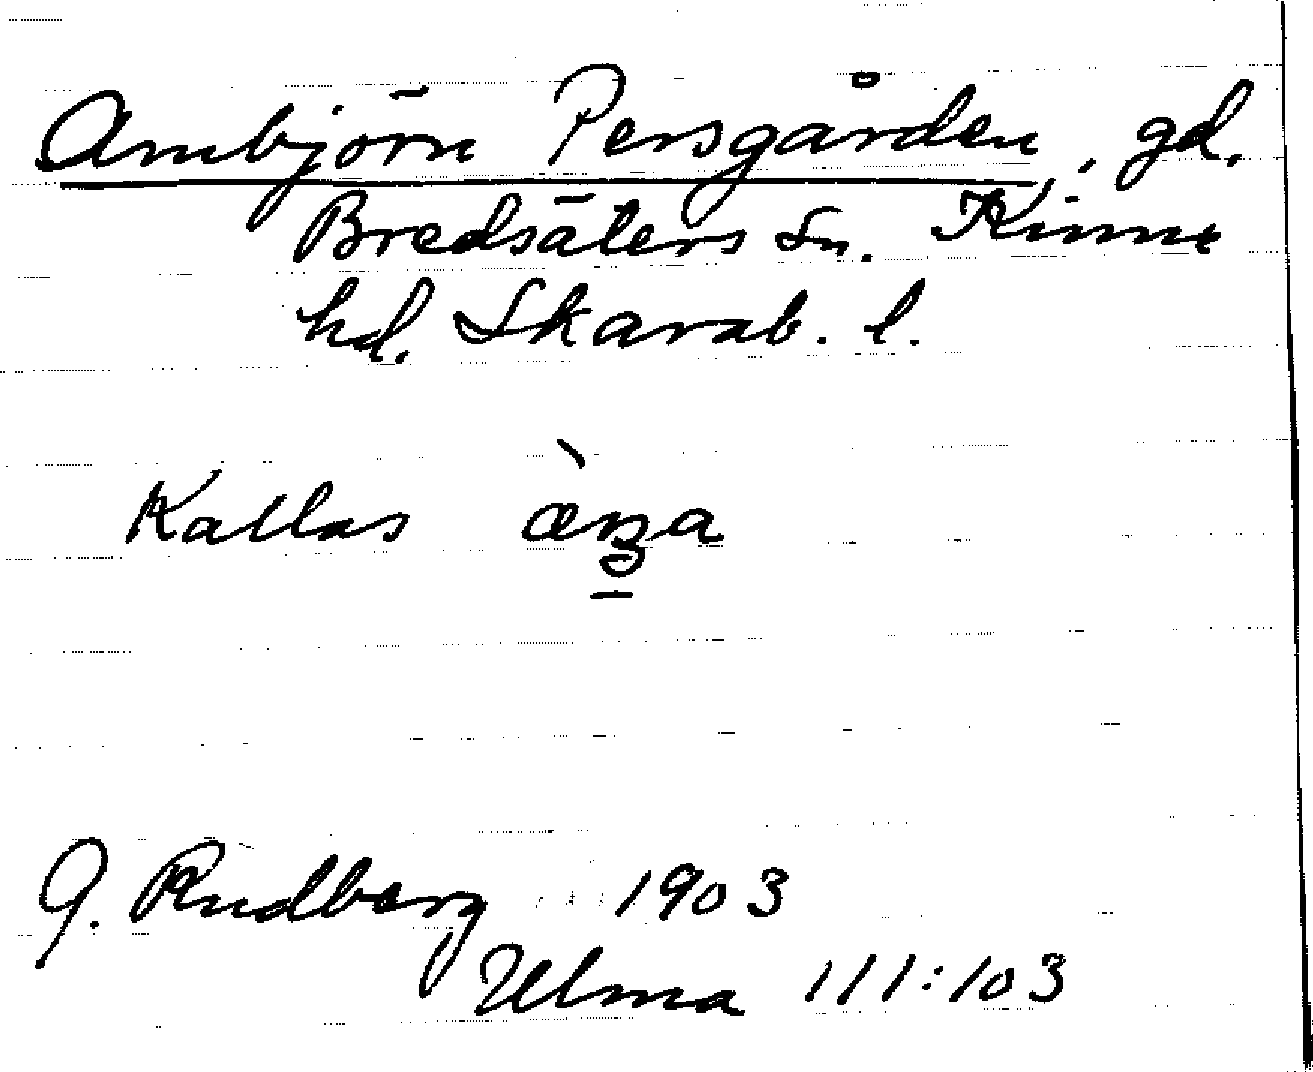 Ambjörn Persgården, gd.
Bredsäters sn. Kinne
hd. Skarab. l.
Kallas
G. Rudberg 1903
Ulma 111:103